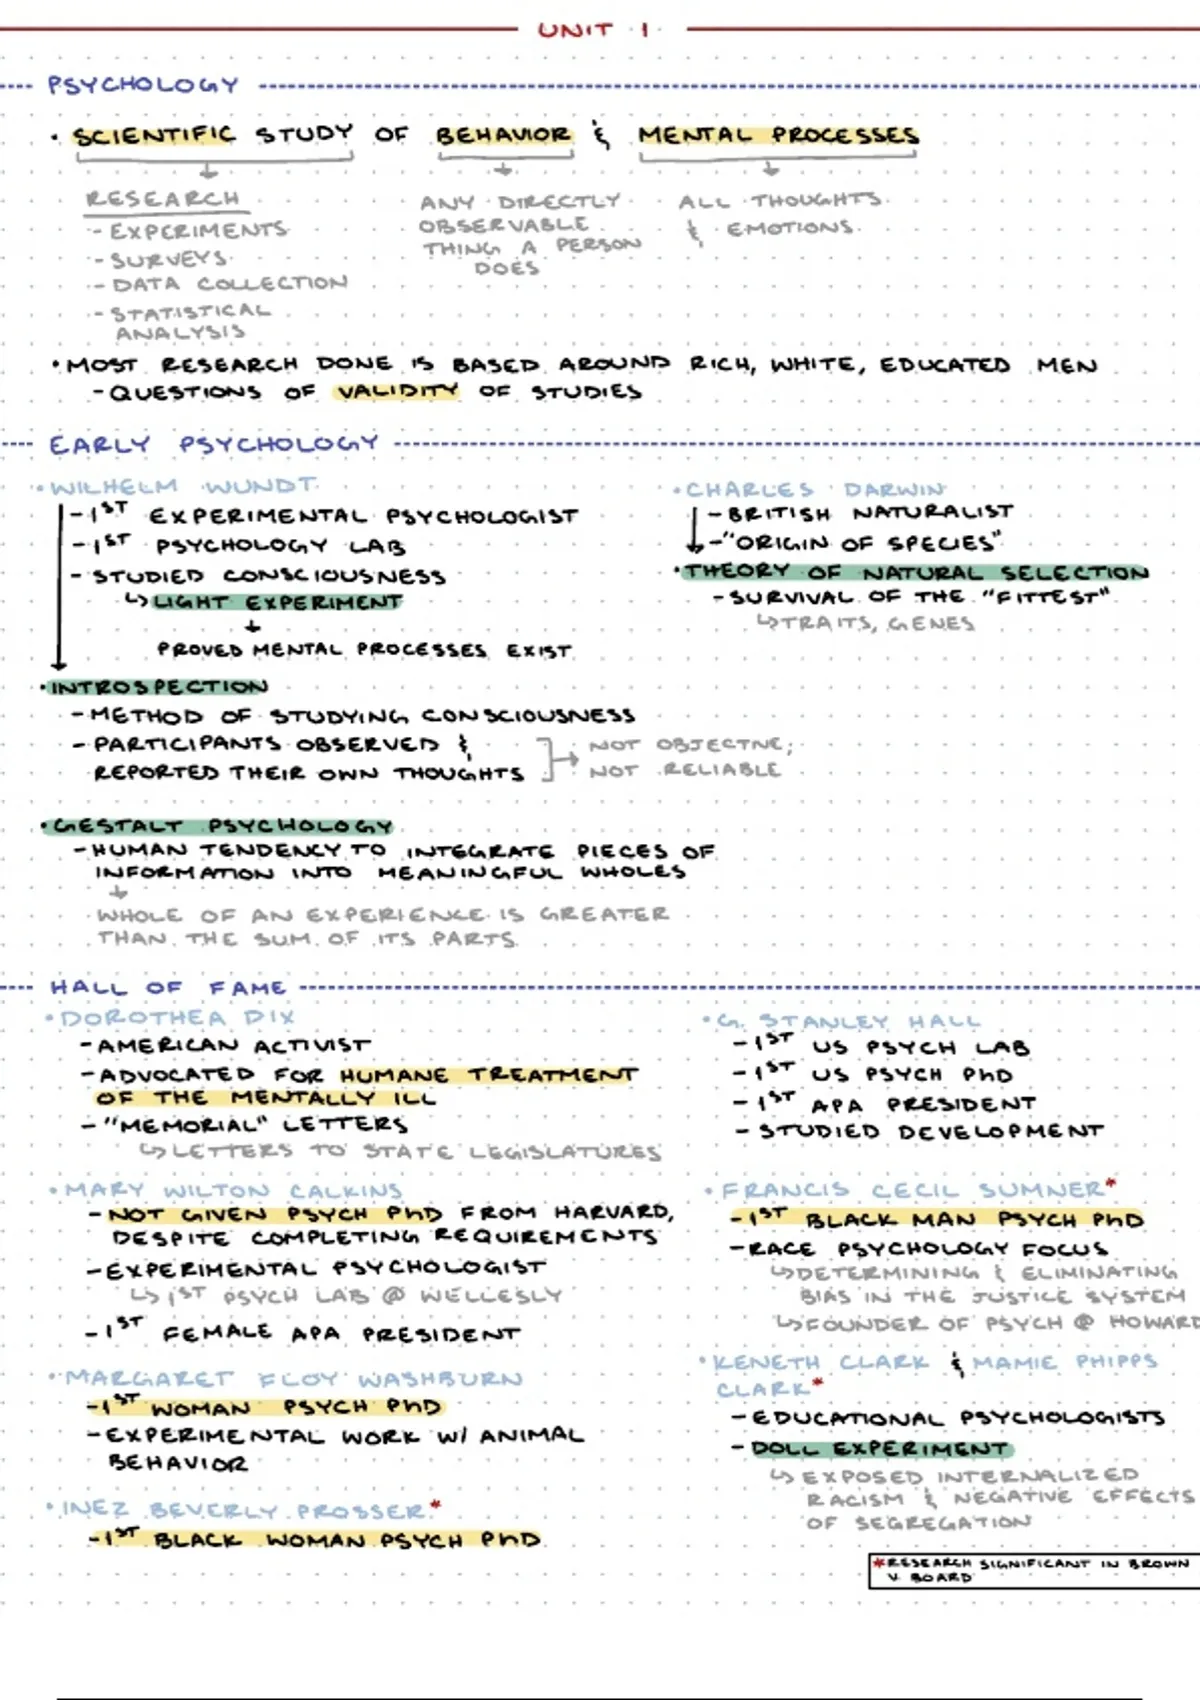 UNIT 1
PSYCHOLOGY
• SCIENTIFIC STUDY OF BEHAVIOR & MENTAL PROCESSES
RESEARCH
- EXPERIMENTS
- SURVEYS
- DATA COLLECTION
- STATISTICAL
ANALYSIS
ANY DIRECTLY
OBSERVABLE
THING A PERSON
DOES
ALL THOUGHTS
& EMOTIONS
• MOST RESEARCH DONE IS BASED AROUND RICH, WHITE, EDUCATED MEN
- QUESTIONS OF VALIDITY OF STUDIES
EARLY PSYCHOLOGY
• WILHELM WUNDT
- 1ST EXPERIMENTAL PSYCHOLOGIST
- 1ST PSYCHOLOGY LAB
- STUDIED CONSCIOUSNESS
↳ LIGHT EXPERIMENT
↓
PROVED MENTAL PROCESSES EXIST
• INTROSPECTION
- METHOD OF STUDYING CONSCIOUSNESS
- PARTICIPANTS OBSERVED &
REPORTED THEIR OWN THOUGHTS
NOT OBJECTIVE;
NOT RELIABLE
• GESTALT PSYCHOLOGY
- HUMAN TENDENCY TO INTEGRATE PIECES OF
INFORMATION INTO MEANINGFUL WHOLES
↓
WHOLE OF AN EXPERIENCE IS GREATER
THAN THE SUM OF ITS PARTS
• CHARLES DARWIN
- BRITISH NATURALIST
- "ORIGIN OF SPECIES"
• THEORY OF NATURAL SELECTION
- SURVIVAL OF THE "FITTEST"
↳ TRAITS, GENES
HALL OF FAME
• DOROTHEA DIX
- AMERICAN ACTIVIST
- ADVOCATED FOR HUMANE TREATMENT
OF THE MENTALLY ILL
- "MEMORIAL" LETTERS
↳ LETTERS TO STATE LEGISLATURES
• MARY WILTON CALKINS
- NOT GIVEN PSYCH PhD FROM HARVARD,
DESPITE COMPLETING REQUIREMENTS
- EXPERIMENTAL PSYCHOLOGIST
↳ 1ST PSYCH LAB @ WELLESLY
- 1ST FEMALE APA PRESIDENT
• MARGARET FLOY WASHBURN
- 1ST WOMAN PSYCH PhD
- EXPERIMENTAL WORK W/ ANIMAL
BEHAVIOR
• INEZ BEVERLY PROSSER*
- 1ST BLACK WOMAN PSYCH PhD
• G. STANLEY HALL
- 1ST US PSYCH LAB
- 1ST US PSYCH PhD
- 1ST APA PRESIDENT
- STUDIED DEVELOPMENT
• FRANCIS CECIL SUMNER*
- 1ST BLACK MAN PSYCH PhD
- RACE PSYCHOLOGY FOCUS
↳ DETERMINING & ELIMINATING
BIAS IN THE JUSTICE SYSTEM
↳ FOUNDER OF PSYCH @ HOWARD
• KENETH CLARK & MAMIE PHIPPS
CLARK*
- EDUCATIONAL PSYCHOLOGISTS
- DOLL EXPERIMENT
↳ EXPOSED INTERNALIZED
RACISM & NEGATIVE EFFECTS
OF SEGREGATION
*RESEARCH SIGNIFICANT IN BROWN
V. BOARD